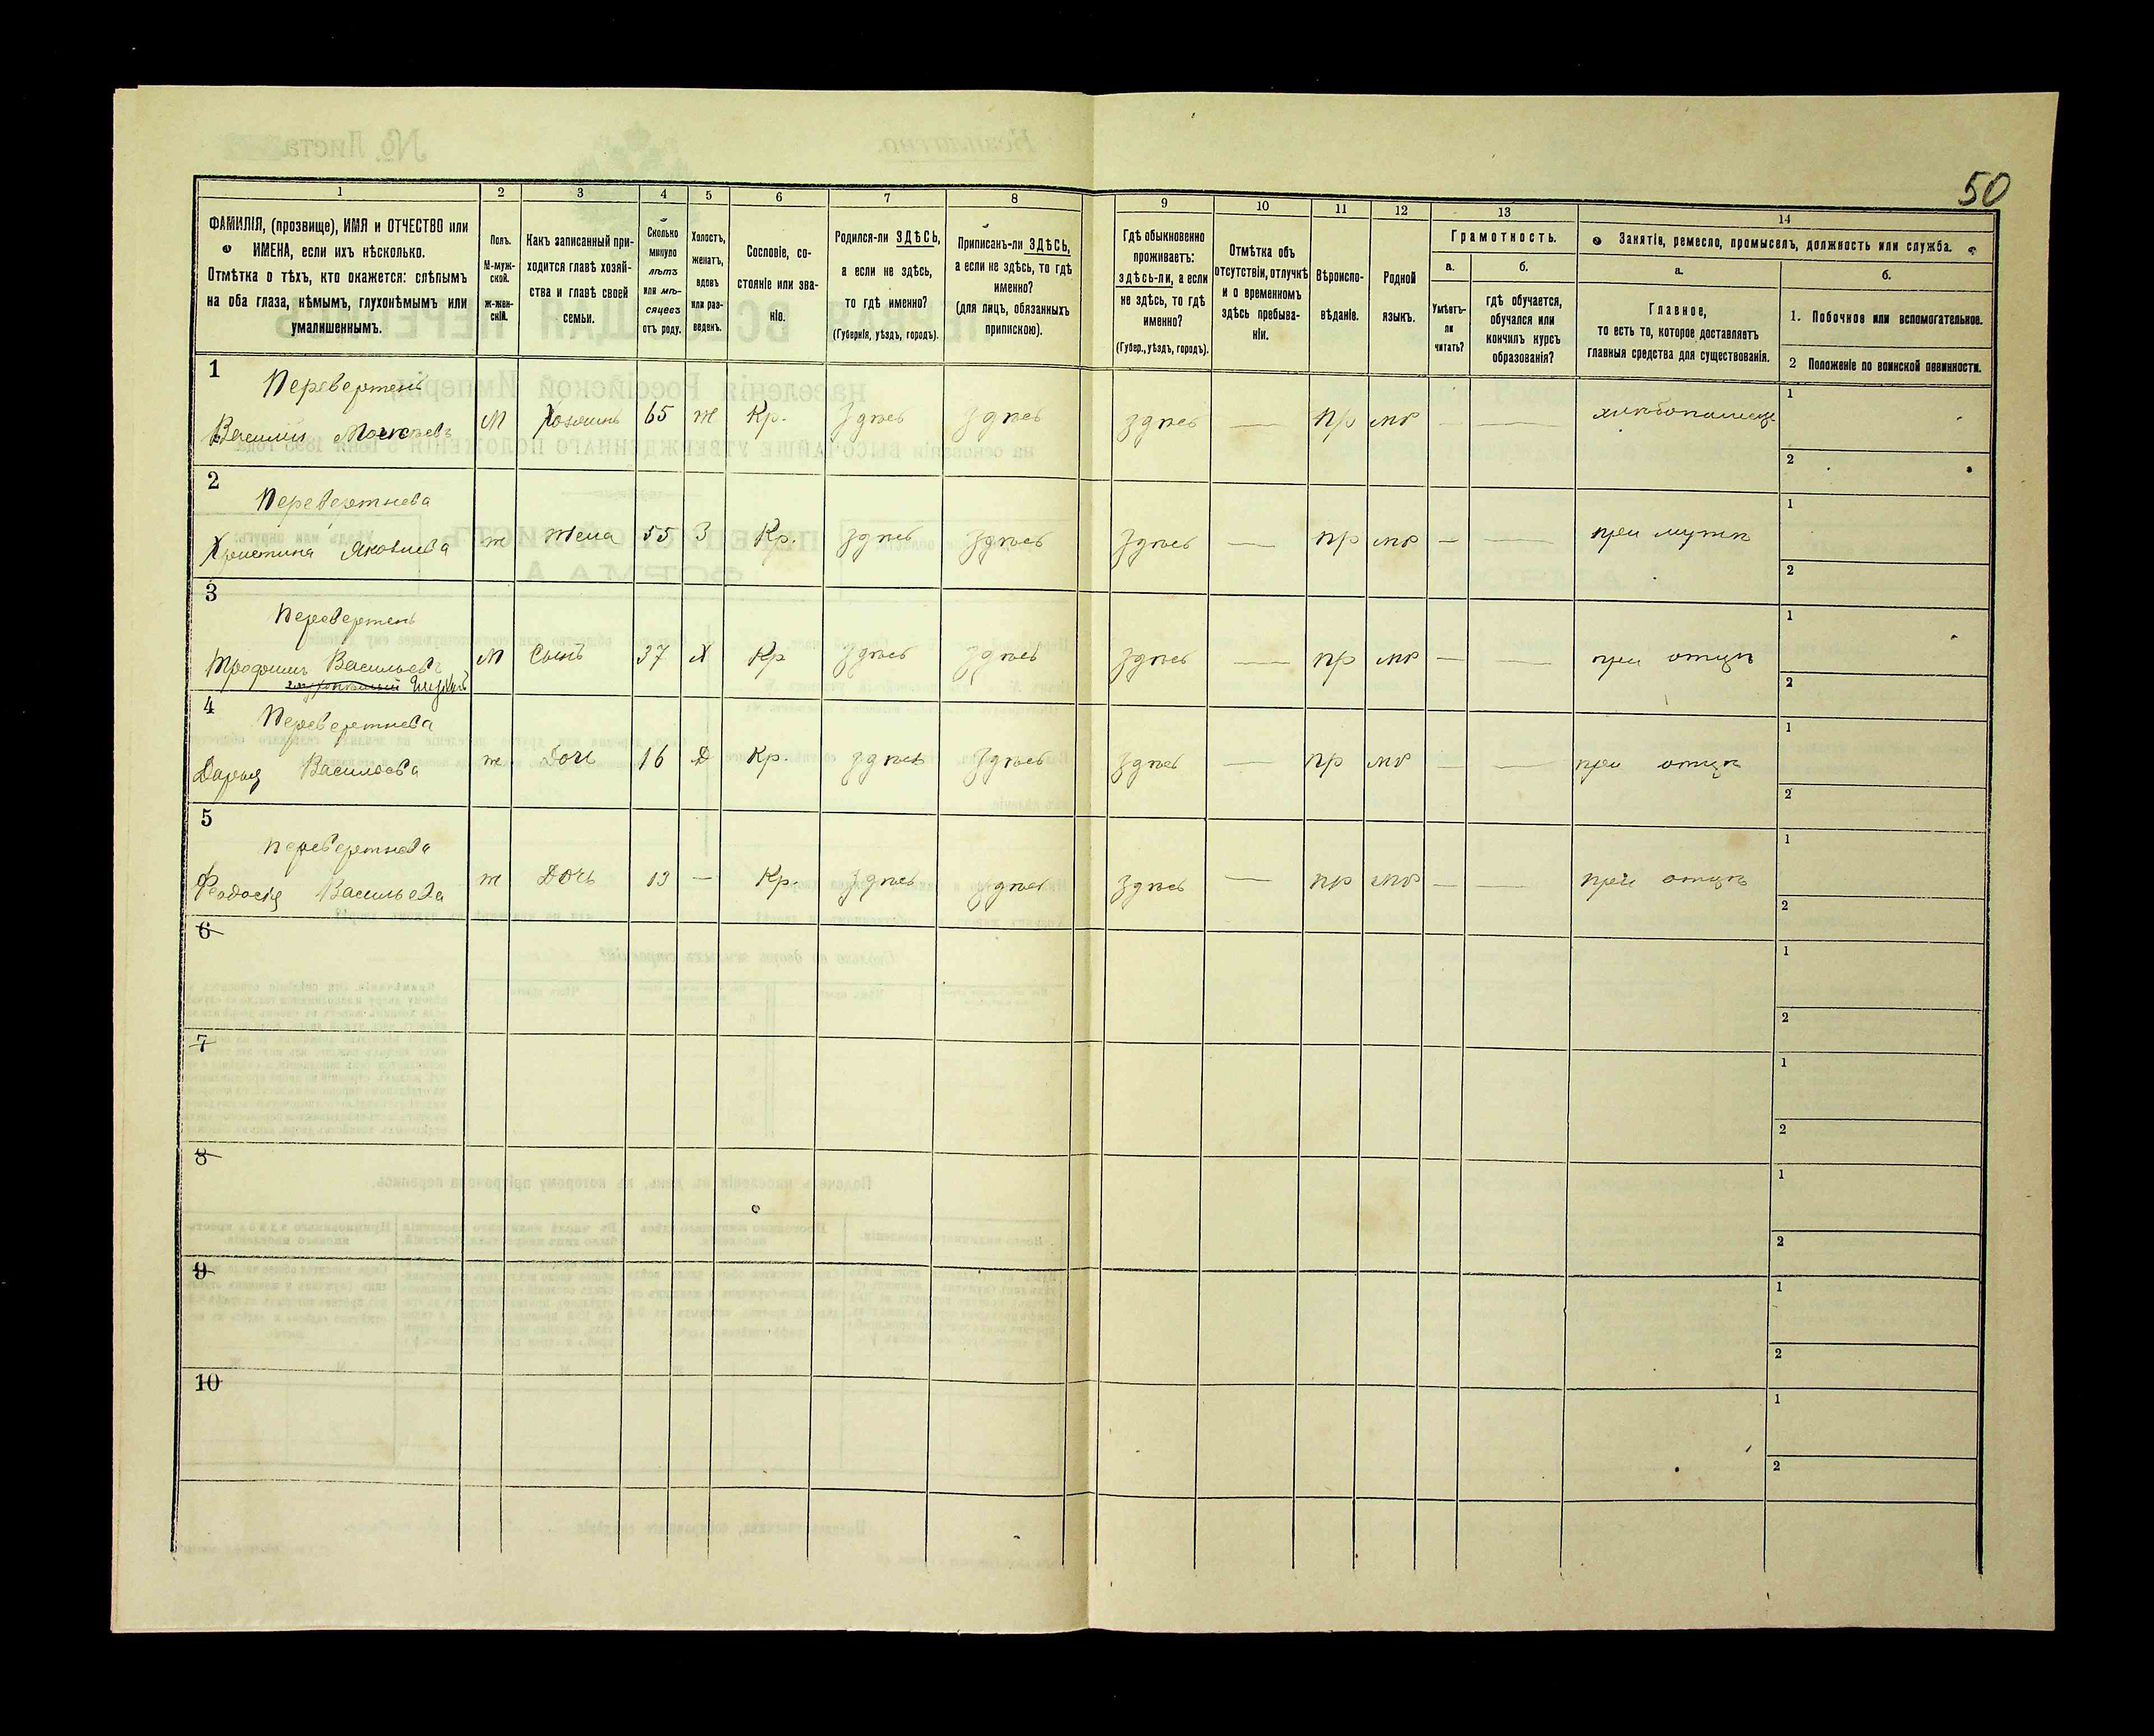 50
1 2 3 4 5 6 7 8 9 10 11 12 13 14
ФАМИЛІЯ, (прозвище), ИМЯ и ОТЧЕСТВО или
ИМЕНА, если ихъ нѣсколько.
Отмѣтка о тѣхъ, кто окажется: слѣпымъ
на оба глаза, нѣмымъ, глухонѣмымъ или
умалишеннымъ.
Полъ.
М-муж-
ской.
ж-жен-
скій.
Какъ записанный при-
ходится главѣ хозяй-
ства и главѣ своей
семьи.
Сколько
минуло
лѣтъ
или мѣ-
сяцевъ
отъ роду.
Холостъ,
женатъ,
вдовъ
или раз-
веденъ.
Сословіе, со-
стояніе или зва-
ніе.
Родился-ли ЗДѢСЬ,
а если не здѣсь,
то гдѣ именно?
(Губернія, уѣздъ, городъ).
Приписанъ-ли ЗДѢСЬ,
а если не здѣсь, то гдѣ
именно?
(для лицъ, обязанныхъ
припискою).
Гдѣ обыкновенно
проживаетъ:
здѣсь-ли, а если
не здѣсь, то гдѣ
именно?
(Губер., уѣздъ, городъ).
Отмѣтка объ
отсутствіи, отлучкѣ
и о временномъ
здѣсь пребыва-
ніи.
Вѣроиспо-
вѣданіе.
Родной
языкъ.
Грамотность.
а.
Умѣетъ-
ли
читать?
б.
гдѣ обучается,
обучался или
кончилъ курсъ
образованія?
Занятія, ремесло, промыселъ, должность или служба.
а.
Главное,
то есть то, которое доставляетъ
главныя средства для существованія.
б.
1. Побочное или вспомогательное.
2 Положеніе по воинской повинности.
1
Перевертень
Василій М Хозяинъ 65 ж Кр. Здѣсь Здѣсь Здѣсь — Пр мр — —
1
2
2
Перевертнева
Христина Яковлева ж жена 55 З Кр. Здѣсь Здѣсь Здѣсь — пр мр — — при мужѣ
1
2
3
Перевертень
Трофимъ Васильевъ М Сынъ 37 Х Кр Здѣсь Здѣсь Здѣсь — пр мр — — при отцѣ
1
2
4
Перевертнева
Дарья Васильева ж Дочь 16 Д Кр. Здѣсь Здѣсь Здѣсь — пр мр — — при отцѣ
1
2
5
Перевертнева
Феодосія Васильева ж Дочь 13 — Кр. Здѣсь Здѣсь Здѣсь — пр мр — — при отцѣ
1
2
6
1
2
7
1
2
8
1
2
9
1
2
10
1
2